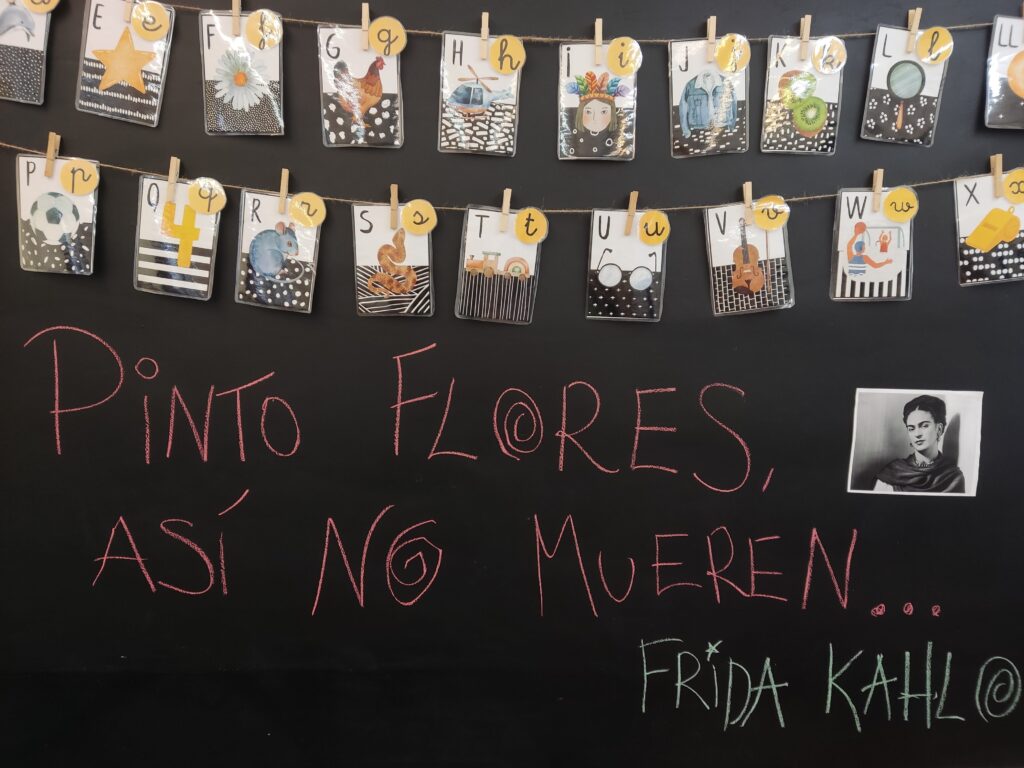 E e F f G g H h i i J j K k L l
P p Q q R r S s T t U u V v W w X x
PINTO FLORES,
ASÍ NO MUEREN...
FRIDA KAHLO